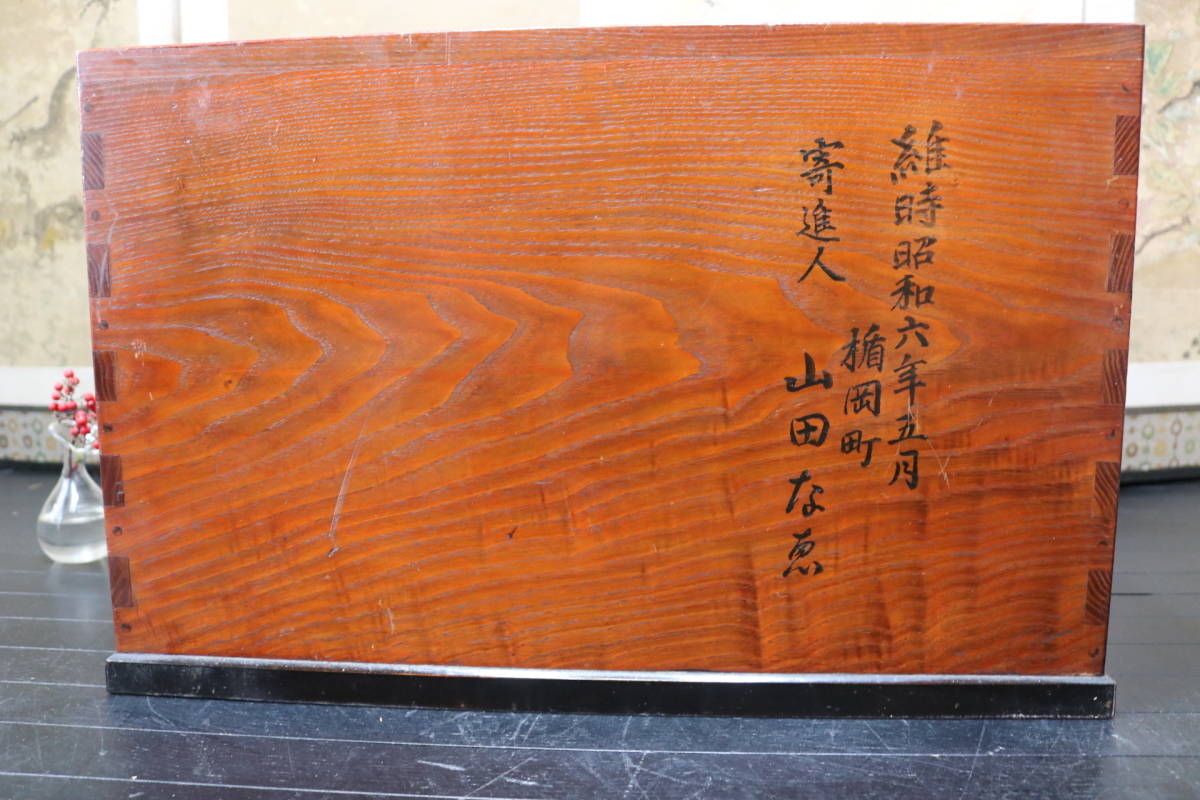 維時昭和六年五月
寄進人
楯岡町
山田な恵